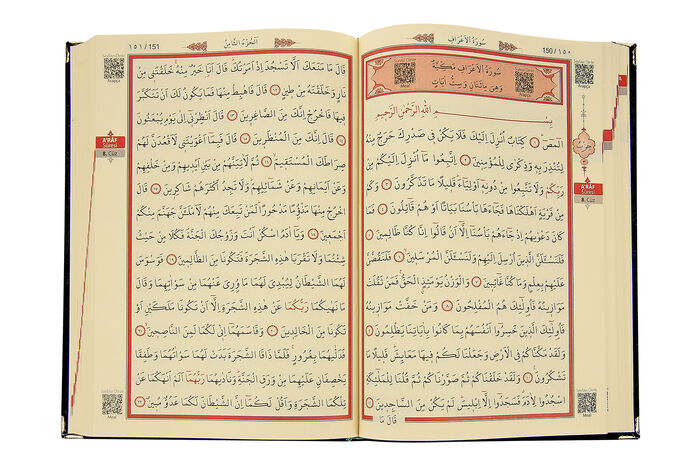 سُورَةُ الْاَعْرَافِ
150/١٥٠
Sayfayı Dinle
Arapça
Sureyi Dinle
Meal
سُورَةُ الْاَعْرَافِ مَكِّيَّةٌ
وَهِيَ مِائَتَانِ وَسِتُّ اٰيَاتٍ
Arapça
بِسْمِ اللّٰهِ الرَّحْمٰنِ الرَّح۪يمِ
الٓمٓصٓ ﴿١﴾ كِتَابٌ اُنْزِلَ اِلَيْكَ فَلَا يَكُنْ ف۪ي صَدْرِكَ حَرَجٌ مِنْهُ
لِتُنْذِرَ بِه۪ وَذِكْرٰى لِلْمُؤْمِن۪ينَ ﴿٢﴾ اِتَّبِعُوا مَٓا اُنْزِلَ اِلَيْكُمْ مِنْ
رَبِّكُمْ وَلَا تَتَّبِعُوا مِنْ دُونِه۪ٓ اَوْلِيَٓاءَ قَل۪يلًا مَا تَذَكَّرُونَ ﴿٣﴾ وَكَمْ
مِنْ قَرْيَةٍ اَهْلَكْنَاهَا فَجَٓاءَهَا بَأْسُنَا بَيَاتًا اَوْ هُمْ قَٓائِلُونَ ﴿٤﴾ فَمَا
كَانَ دَعْوٰيهُمْ اِذْ جَٓاءَهُمْ بَأْسُنَٓا اِلَّٓا اَنْ قَالُٓوا اِنَّا كُنَّا ظَالِم۪ينَ ﴿٥﴾
فَلَنَسْـَٔلَنَّ الَّذ۪ينَ اُرْسِلَ اِلَيْهِمْ وَلَنَسْـَٔلَنَّ الْمُرْسَل۪ينَ ﴿٦﴾ فَلَنَقُصَّنَّ
عَلَيْهِمْ بِعِلْمٍ وَمَا كُنَّا غَٓائِب۪ينَ ﴿٧﴾ وَالْوَزْنُ يَوْمَئِذٍ الْحَقُّ فَمَنْ ثَقُلَتْ
مَوَاز۪ينُهُ فَاُو۬لٰٓئِكَ هُمُ الْمُفْلِحُونَ ﴿٨﴾ وَمَنْ خَفَّتْ مَوَاز۪ينُهُ
فَاُو۬لٰٓئِكَ الَّذ۪ينَ خَسِرُٓوا اَنْفُسَهُمْ بِمَا كَانُوا بِاٰيَاتِنَا يَظْلِمُونَ ﴿٩﴾
وَلَقَدْ مَكَّنَّاكُمْ فِي الْاَرْضِ وَجَعَلْنَا لَكُمْ ف۪يهَا مَعَايِشَ قَل۪يلًا مَا
تَشْكُرُونَ ﴿١٠﴾ وَلَقَدْ خَلَقْنَاكُمْ ثُمَّ صَوَّرْنَاكُمْ ثُمَّ قُلْنَا لِلْمَلٰٓئِكَةِ
اسْجُدُوا لِاٰدَمَ فَسَجَدُٓوا اِلَّٓا اِبْل۪يسَ لَمْ يَكُنْ مِنَ السَّاجِد۪ينَ ﴿١١﴾
قَالَ مَا
حزب
A'RÂF
Sûresi
8. Cüz
Sayfayı Dinle
Meal
اَلْجُزْءُ الثَّامِنُ
١٥١/151
Sayfayı Dinle
Arapça
قَالَ مَا مَنَعَكَ اَلَّا تَسْجُدَ اِذْ اَمَرْتُكَ قَالَ اَنَا۬ خَيْرٌ مِنْهُ خَلَقْتَن۪ي مِنْ
نَارٍ وَخَلَقْتَهُ مِنْ ط۪ينٍ ﴿١٢﴾ قَالَ فَاهْبِطْ مِنْهَا فَمَا يَكُونُ لَكَ اَنْ تَتَكَبَّرَ
ف۪يهَا فَاخْرُجْ اِنَّكَ مِنَ الصَّاغِر۪ينَ ﴿١٣﴾ قَالَ اَنْظِرْن۪ٓي اِلٰى يَوْمِ يُبْعَثُونَ
﴿١٤﴾ قَالَ اِنَّكَ مِنَ الْمُنْظَر۪ينَ ﴿١٥﴾ قَالَ فَبِمَٓا اَغْوَيْتَن۪ي لَاَقْعُدَنَّ لَهُمْ
صِرَاطَكَ الْمُسْتَق۪يمَ ﴿١٦﴾ ثُمَّ لَاٰتِيَنَّهُمْ مِنْ بَيْنِ اَيْد۪يهِمْ وَمِنْ خَلْفِهِمْ
وَعَنْ اَيْمَانِهِمْ وَعَنْ شَمَٓائِلِهِمْ وَلَا تَجِدُ اَكْثَرَهُمْ شَاكِر۪ينَ ﴿١٧﴾ قَالَ
اخْرُجْ مِنْهَا مَذْؤُ۫مًا مَدْحُورًا لَمَنْ تَبِعَكَ مِنْهُمْ لَاَمْلَـَٔنَّ جَهَنَّمَ مِنْكُمْ
اَجْمَع۪ينَ ﴿١٨﴾ وَيَٓا اٰدَمُ اسْكُنْ اَنْتَ وَزَوْجُكَ الْجَنَّةَ فَكُلَا مِنْ حَيْثُ
شِئْتُمَا وَلَا تَقْرَبَا هٰذِهِ الشَّجَرَةَ فَتَكُونَا مِنَ الظَّالِم۪ينَ ﴿١٩﴾ فَوَسْوَسَ
لَهُمَا الشَّيْطَانُ لِيُبْدِيَ لَهُمَا مَا وُ۫رِيَ عَنْهُمَا مِنْ سَوْاٰتِهِمَا وَقَالَ
مَا نَهٰيكُمَا رَبُّكُمَا عَنْ هٰذِهِ الشَّجَرَةِ اِلَّٓا اَنْ تَكُونَا مَلَكَيْنِ اَوْ
تَكُونَا مِنَ الْخَالِد۪ينَ ﴿٢٠﴾ وَقَاسَمَهُمَٓا اِنّ۪ي لَكُمَا لَمِنَ النَّاصِح۪ينَ ﴿٢١﴾
فَدَلّٰيهُمَا بِغُرُورٍ فَلَمَّا ذَاقَا الشَّجَرَةَ بَدَتْ لَهُمَا سَوْاٰتُهُمَا وَطَفِقَا
يَخْصِفَانِ عَلَيْهِمَا مِنْ وَرَقِ الْجَنَّةِ وَنَادٰيهُمَا رَبُّهُمَٓا اَلَمْ اَنْهَكُمَا عَنْ
تِلْكُمَا الشَّجَرَةِ وَاَقُلْ لَكُمَٓا اِنَّ الشَّيْطَانَ لَكُمَا عَدُوٌّ مُب۪ينٌ ﴿٢٢﴾
A'RÂF
Sûresi
8. Cüz
Sayfayı Dinle
Meal